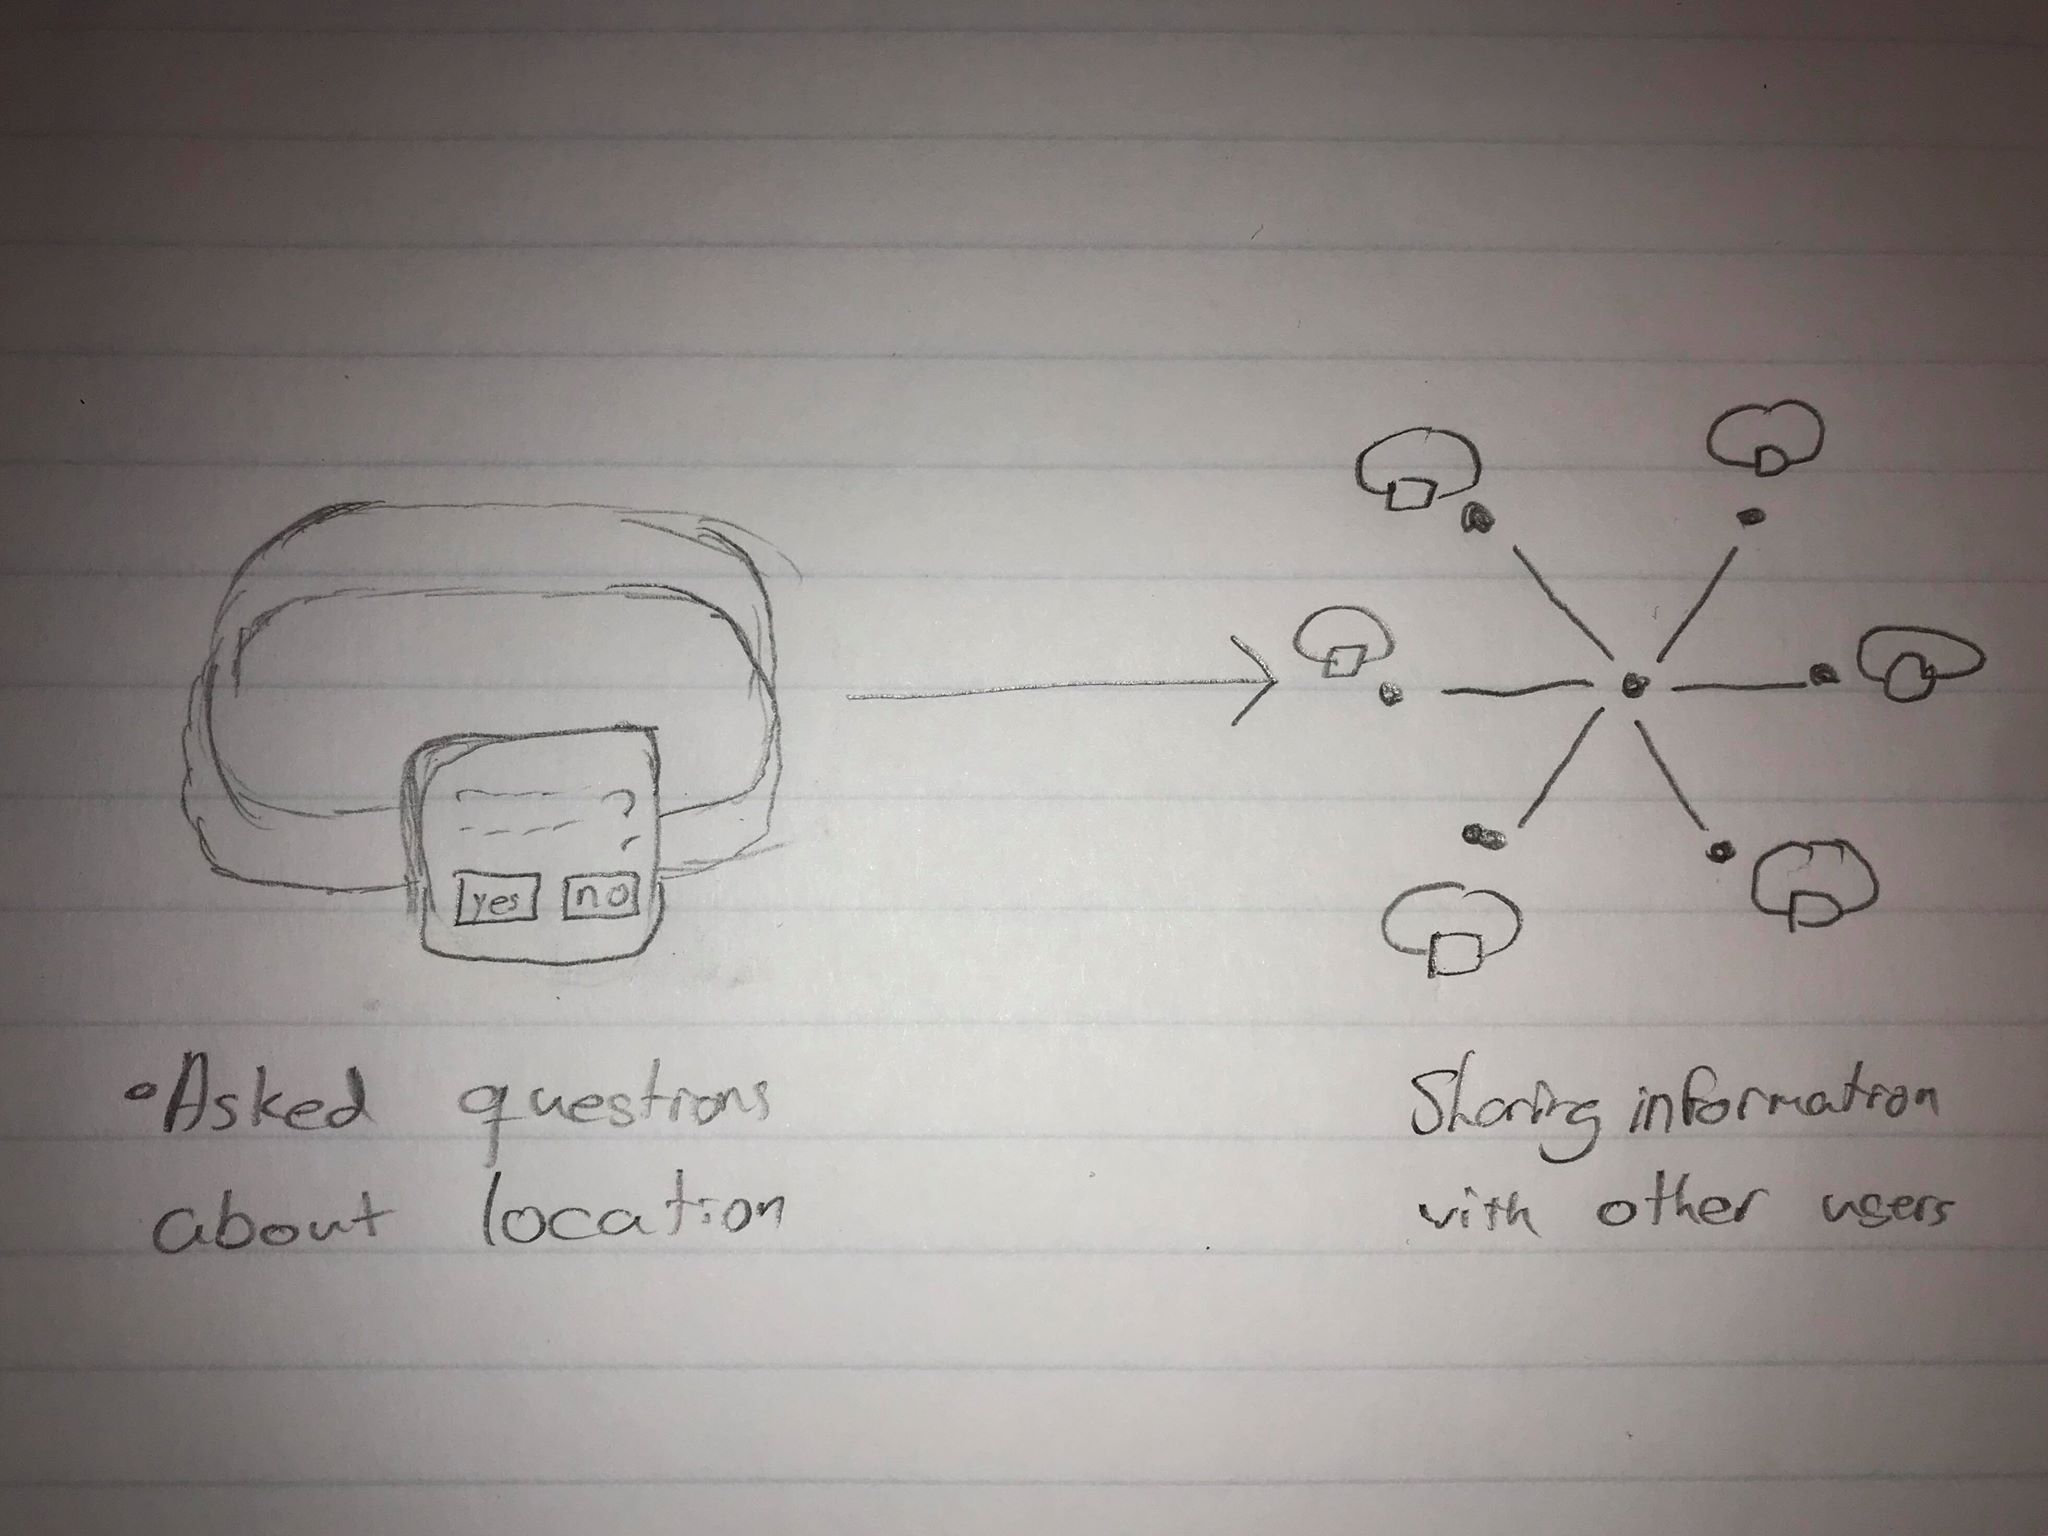 ?
yes no
•Asked questions
about location
Sharing information
with other users